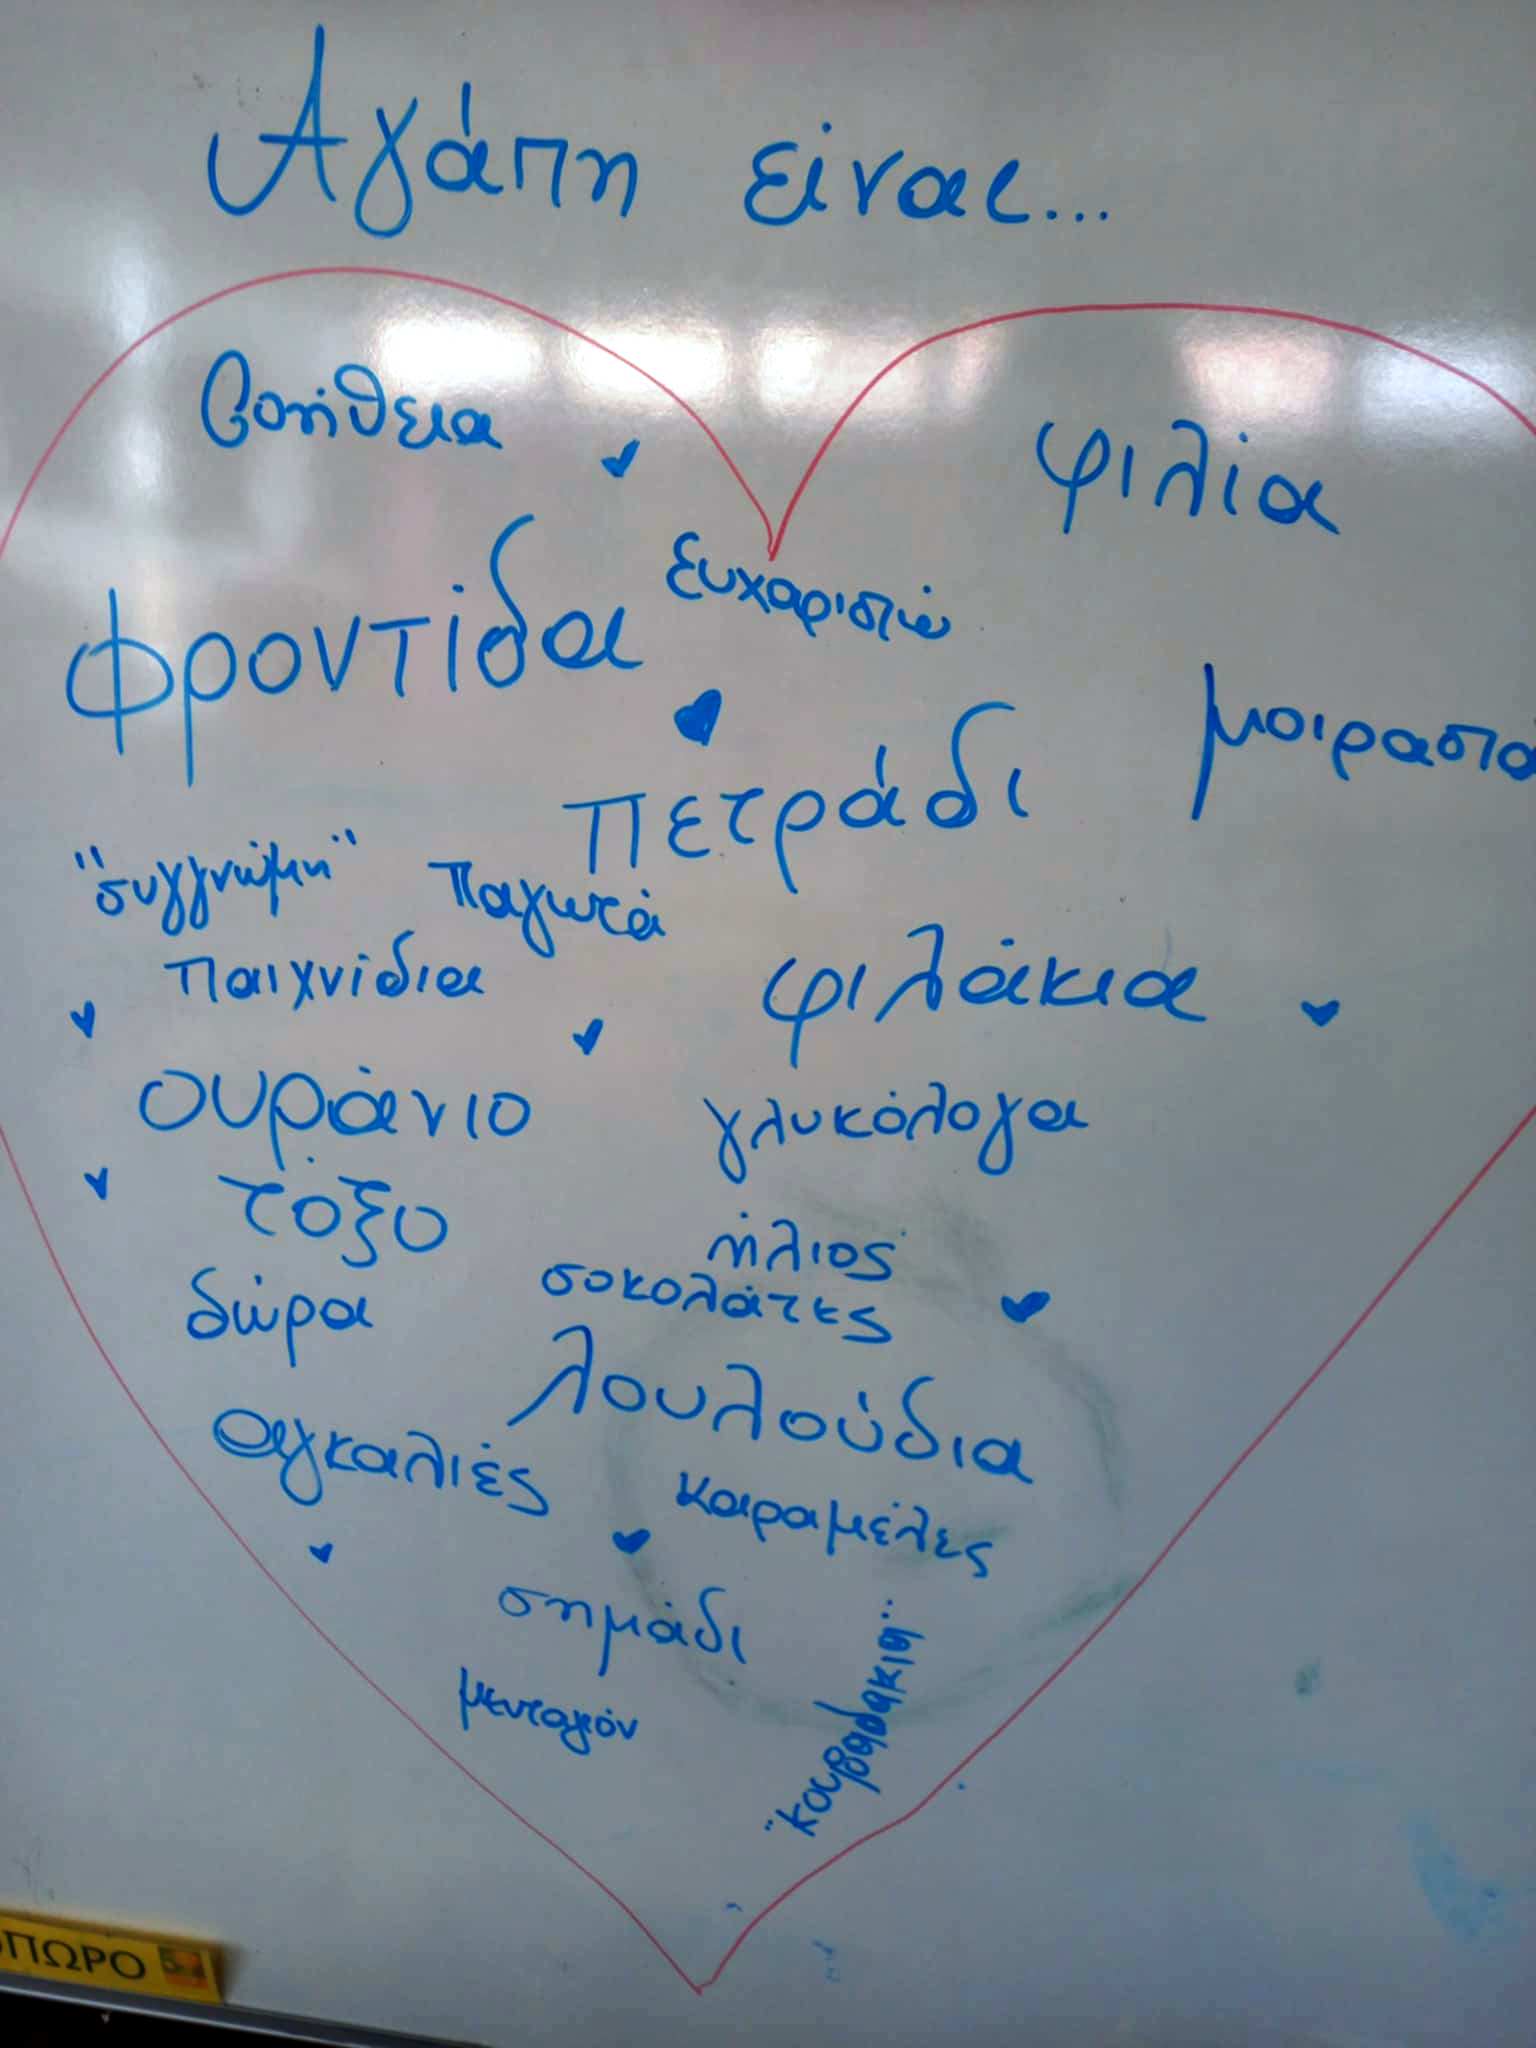 Αγάπη είναι...
βοήθεια
φιλία
ευχαριστώ
Φροντίδα
μοιρασιά
πετράδι
"συγγνώμη"
παγωτά
παιχνίδια
φιλάκια
ουράνιο
τόξο
γλυκόλογα
ήλιος
σοκολάτες
δώρα
λουλούδια
αγκαλιές
καραμέλες
σημάδι
μενταγιόν
"κουβαδάκια"
ΟΠΩΡΟ